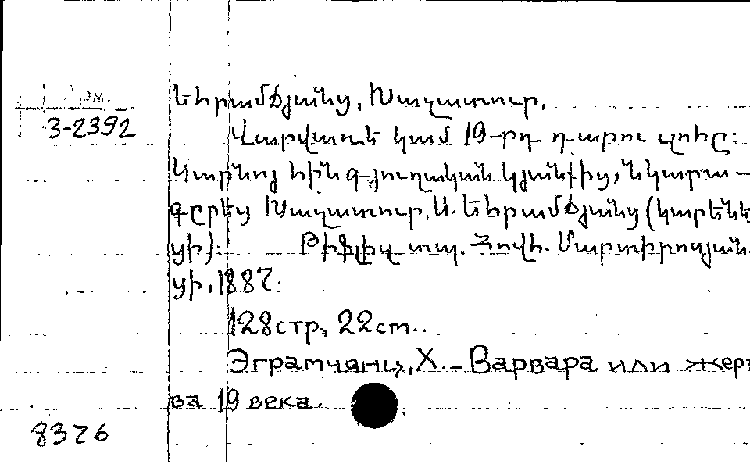 3-2392
Եհրամճյանց, Խաչատուր.
Վարվառե կամ 19-րդ դարու զոհը:
Կարնոյ հին գյուղական կյանքից, նկարա-
գրեց Խաչատուր Ա. Եհրամճյանց (կարենե
ցի): Թիֆլիզ տպ. Հովհ. Մարտիրոսյան
ցի, 1887:
128стр, 22cm.
Эграмчянц, Х.- Варвара или жерт
ва 19 века.
8376